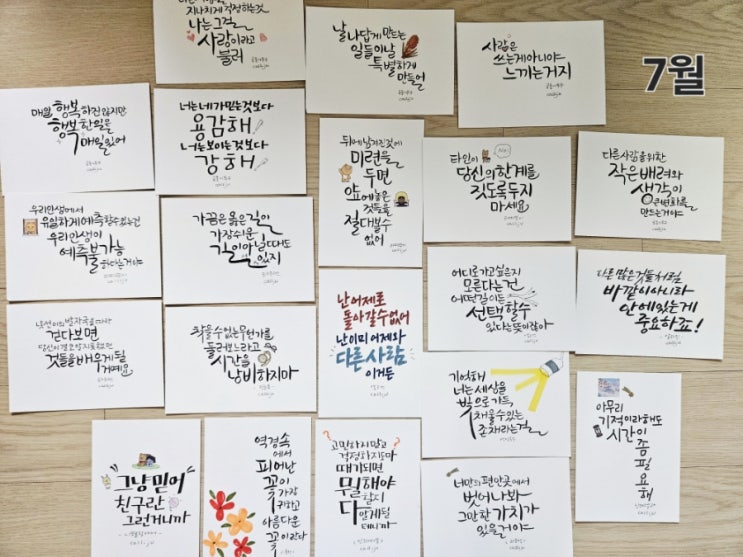 지나치게 걱정하는것
나는 그걸
사랑이라고
불러
날 나답게 만드는
일들이 날
특별하게
만들어
사람은
쓰는게 아니야
느끼는거지
7월
매일 행복하진 않지만
행복한 일은
매일 있어
너는 네가 믿는것보다
용감해
너는 보이는것보다
강해
뒤에 남겨진것에
미련을
두면
앞에 놓은
것들을
절대 볼수
없어
타인이
당신의 한계를
짓도록 두지
마세요
다른 사람을 위한
작은 배려와
생각이
큰 변화를
만드는거야
우리 인생에서
유일하게 예측할수 있는건
우리 인생이
예측불가능
하다는거야
가끔은 옳은 길이
가장 쉬운
길이 아닐 때도
있지
어디로 가고 싶은지
모른다는건
어떤 길이든
선택할수
있다는 뜻이잖아
다른 많은 것들처럼
바깥이 아니라
안에 있는게
중요하죠!
낯선이의 발자국을 따라
걷다보면
것들을 배우게 될
거예요
찾을수 없는 무언가를
둘러보느라고
시간을
낭비하지마
난 어제로
돌아갈수 없어
난 이미 어제와
다른 사람
이거든
기억해
너는 세상을
빛으로 가득
채울수 있는
존재라는걸
아무리
기적이라해도
시간이
좀
필요
해
그냥 믿어
친구란
그런거니까
역경속
에서
피어난
꽃이
가장
귀하고
아름다운
꽃이란다
고민하지말고
걱정하지도마
때가되면
뭘해야
할지
다 알게될
테니까
너만의 편안한 곳에서
벗어나봐
그만한 가치가
있을거야